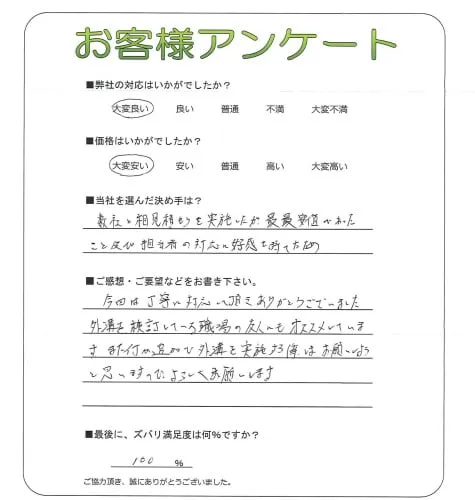 お客様アンケート
■弊社の対応はいかがでしたか？
大変良い 良い 普通 不満 大変不満
■価格はいかがでしたか？
大変安い 安い 普通 高い 大変高い
■当社を選んだ決め手は？
数社と相見積もりを実施したが最安値であった
こと及び担当者の対応に好感を持てたため
■ご感想・ご要望などをお書き下さい。
今回は丁寧に対応して頂きありがとうございました
外溝を検討している職場の友人にもオススメしていま
す また何か追加で外溝を実施する際はお願いしよう
と思いますので、よろしくお願いします
■最後に、ズバリ満足度は何%ですか？
100 %
ご協力頂き、誠にありがとうございました。